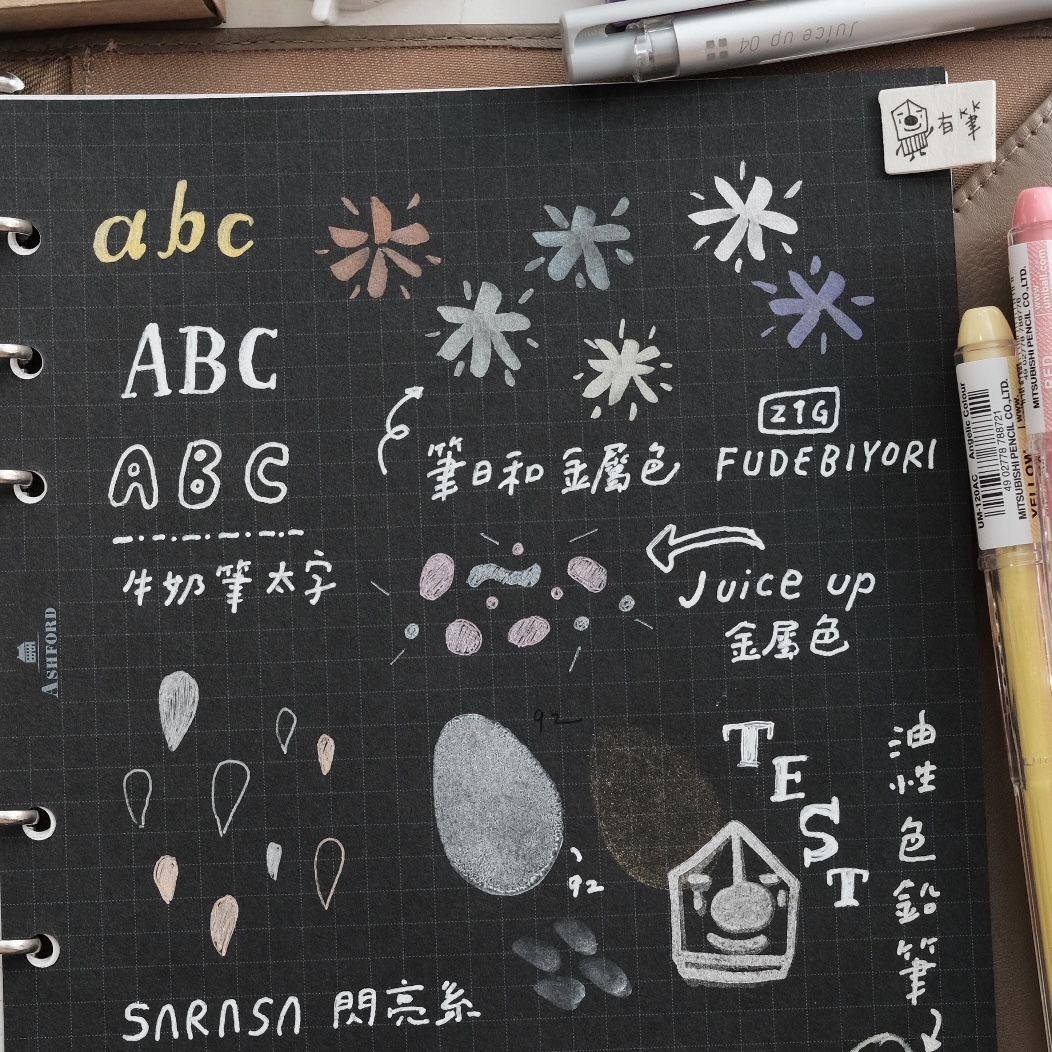 Juice up 04
有筆
abc
ABC
ABC
牛奶筆太字
筆日和 金屬色
ZIG
FUDEBIYORI
Juice up
金屬色
ASHFORD
92
92
TEST
油性色鉛筆
SARASA 閃亮系
UM-120AC
Angelic Colour
49 02778 788721
MITSUBISHI PENCIL CO.,LTD.
YELLOW
MITSUBISHI PENCIL CO.,LTD.
RED
uniball.com